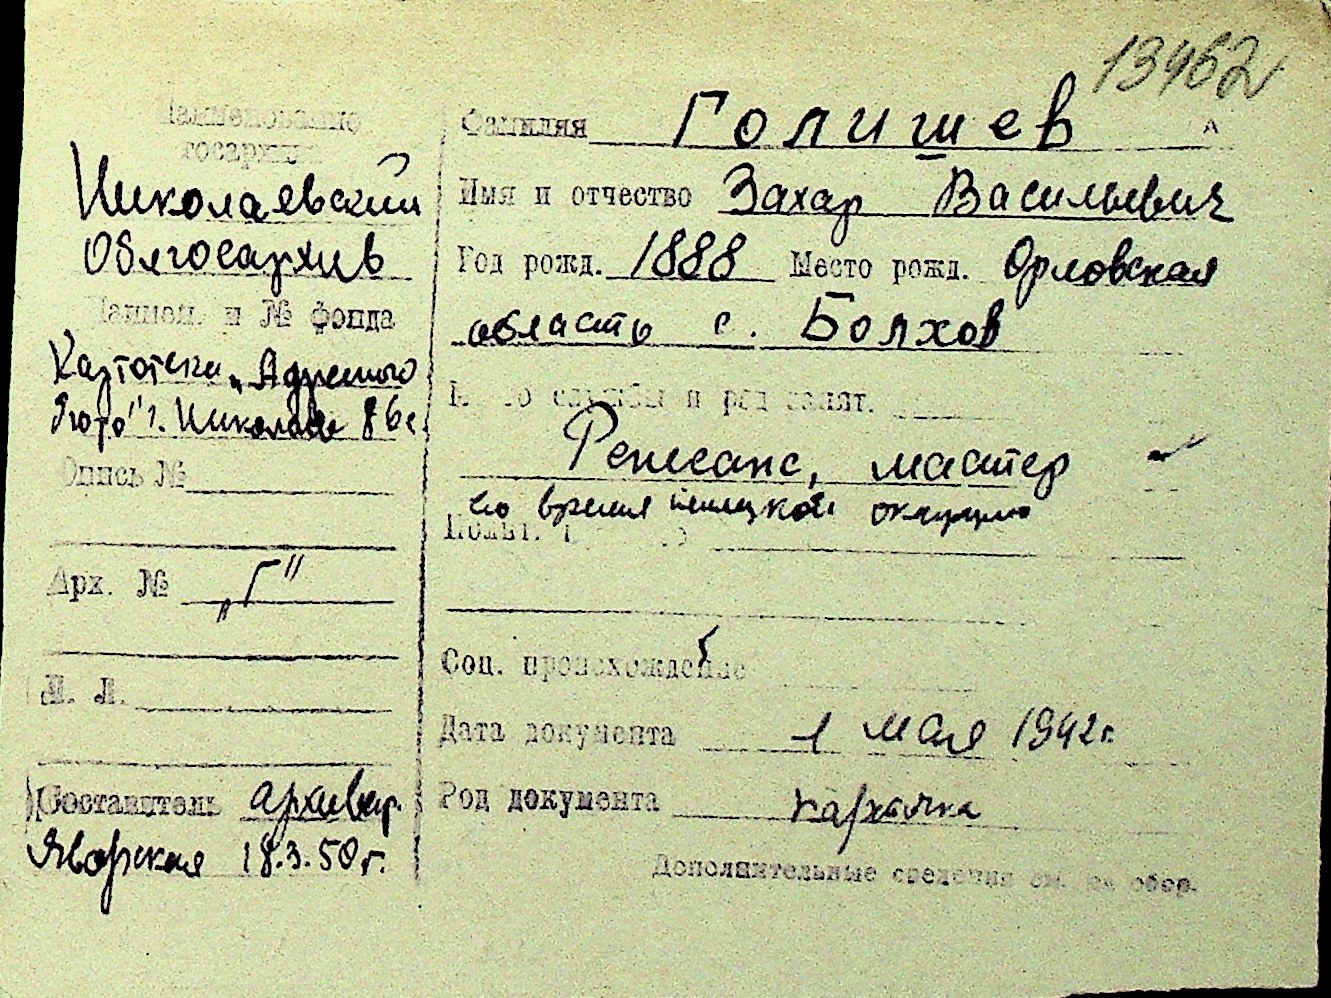 13462
Наименование
госархива
Николаевский
Облгосархив
Наимен. и № фонда
Картотека „Адресного
г. Николаев
Опись №
Арх. № „Г“
К. Л.
Составитель архивар.
Яворская 18.3.50г.
Фамилия Голишев
Имя и отчество Захар Васильевич
Год рожд. 1888 Место рожд. Орловская
область с. Болхов
Место службы и род занят.
мастер
во время немецкой окупации
Полит.
Соц. происхождение
Дата документа 1 мая 1942г.
Род документа карточка
Дополнительные сведения см. на обор.